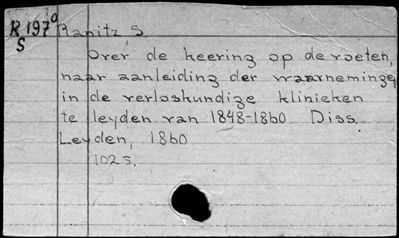 R 197° Ranitz S.
S
Over de keering op de voeten,
naar aanleiding der waarneminge,
in de verloskundige klinieken
te leyden van 1848-1860 Diss.
Leyden, 1860
102 s.